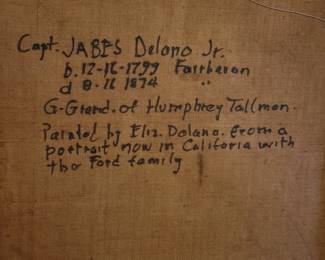 Capt. JABES Delono Jr.
b. 12-16-1799 Fairhaven
d 8-16 1874 "
G-Grand. of Humphrey Tallmon.
Painted by Eliz. Dolano. from a
portrait now in Califoria with
the Ford family